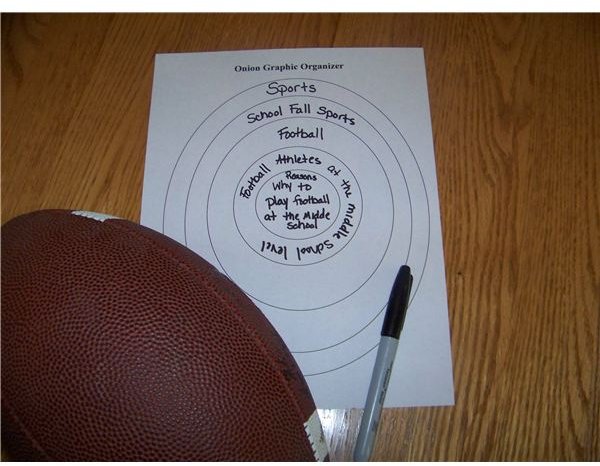 Onion Graphic Organizer
Sports
School Fall Sports
Football
Football Athletes at the middle school level
Reasons
Why to
play football
at the Midde
school